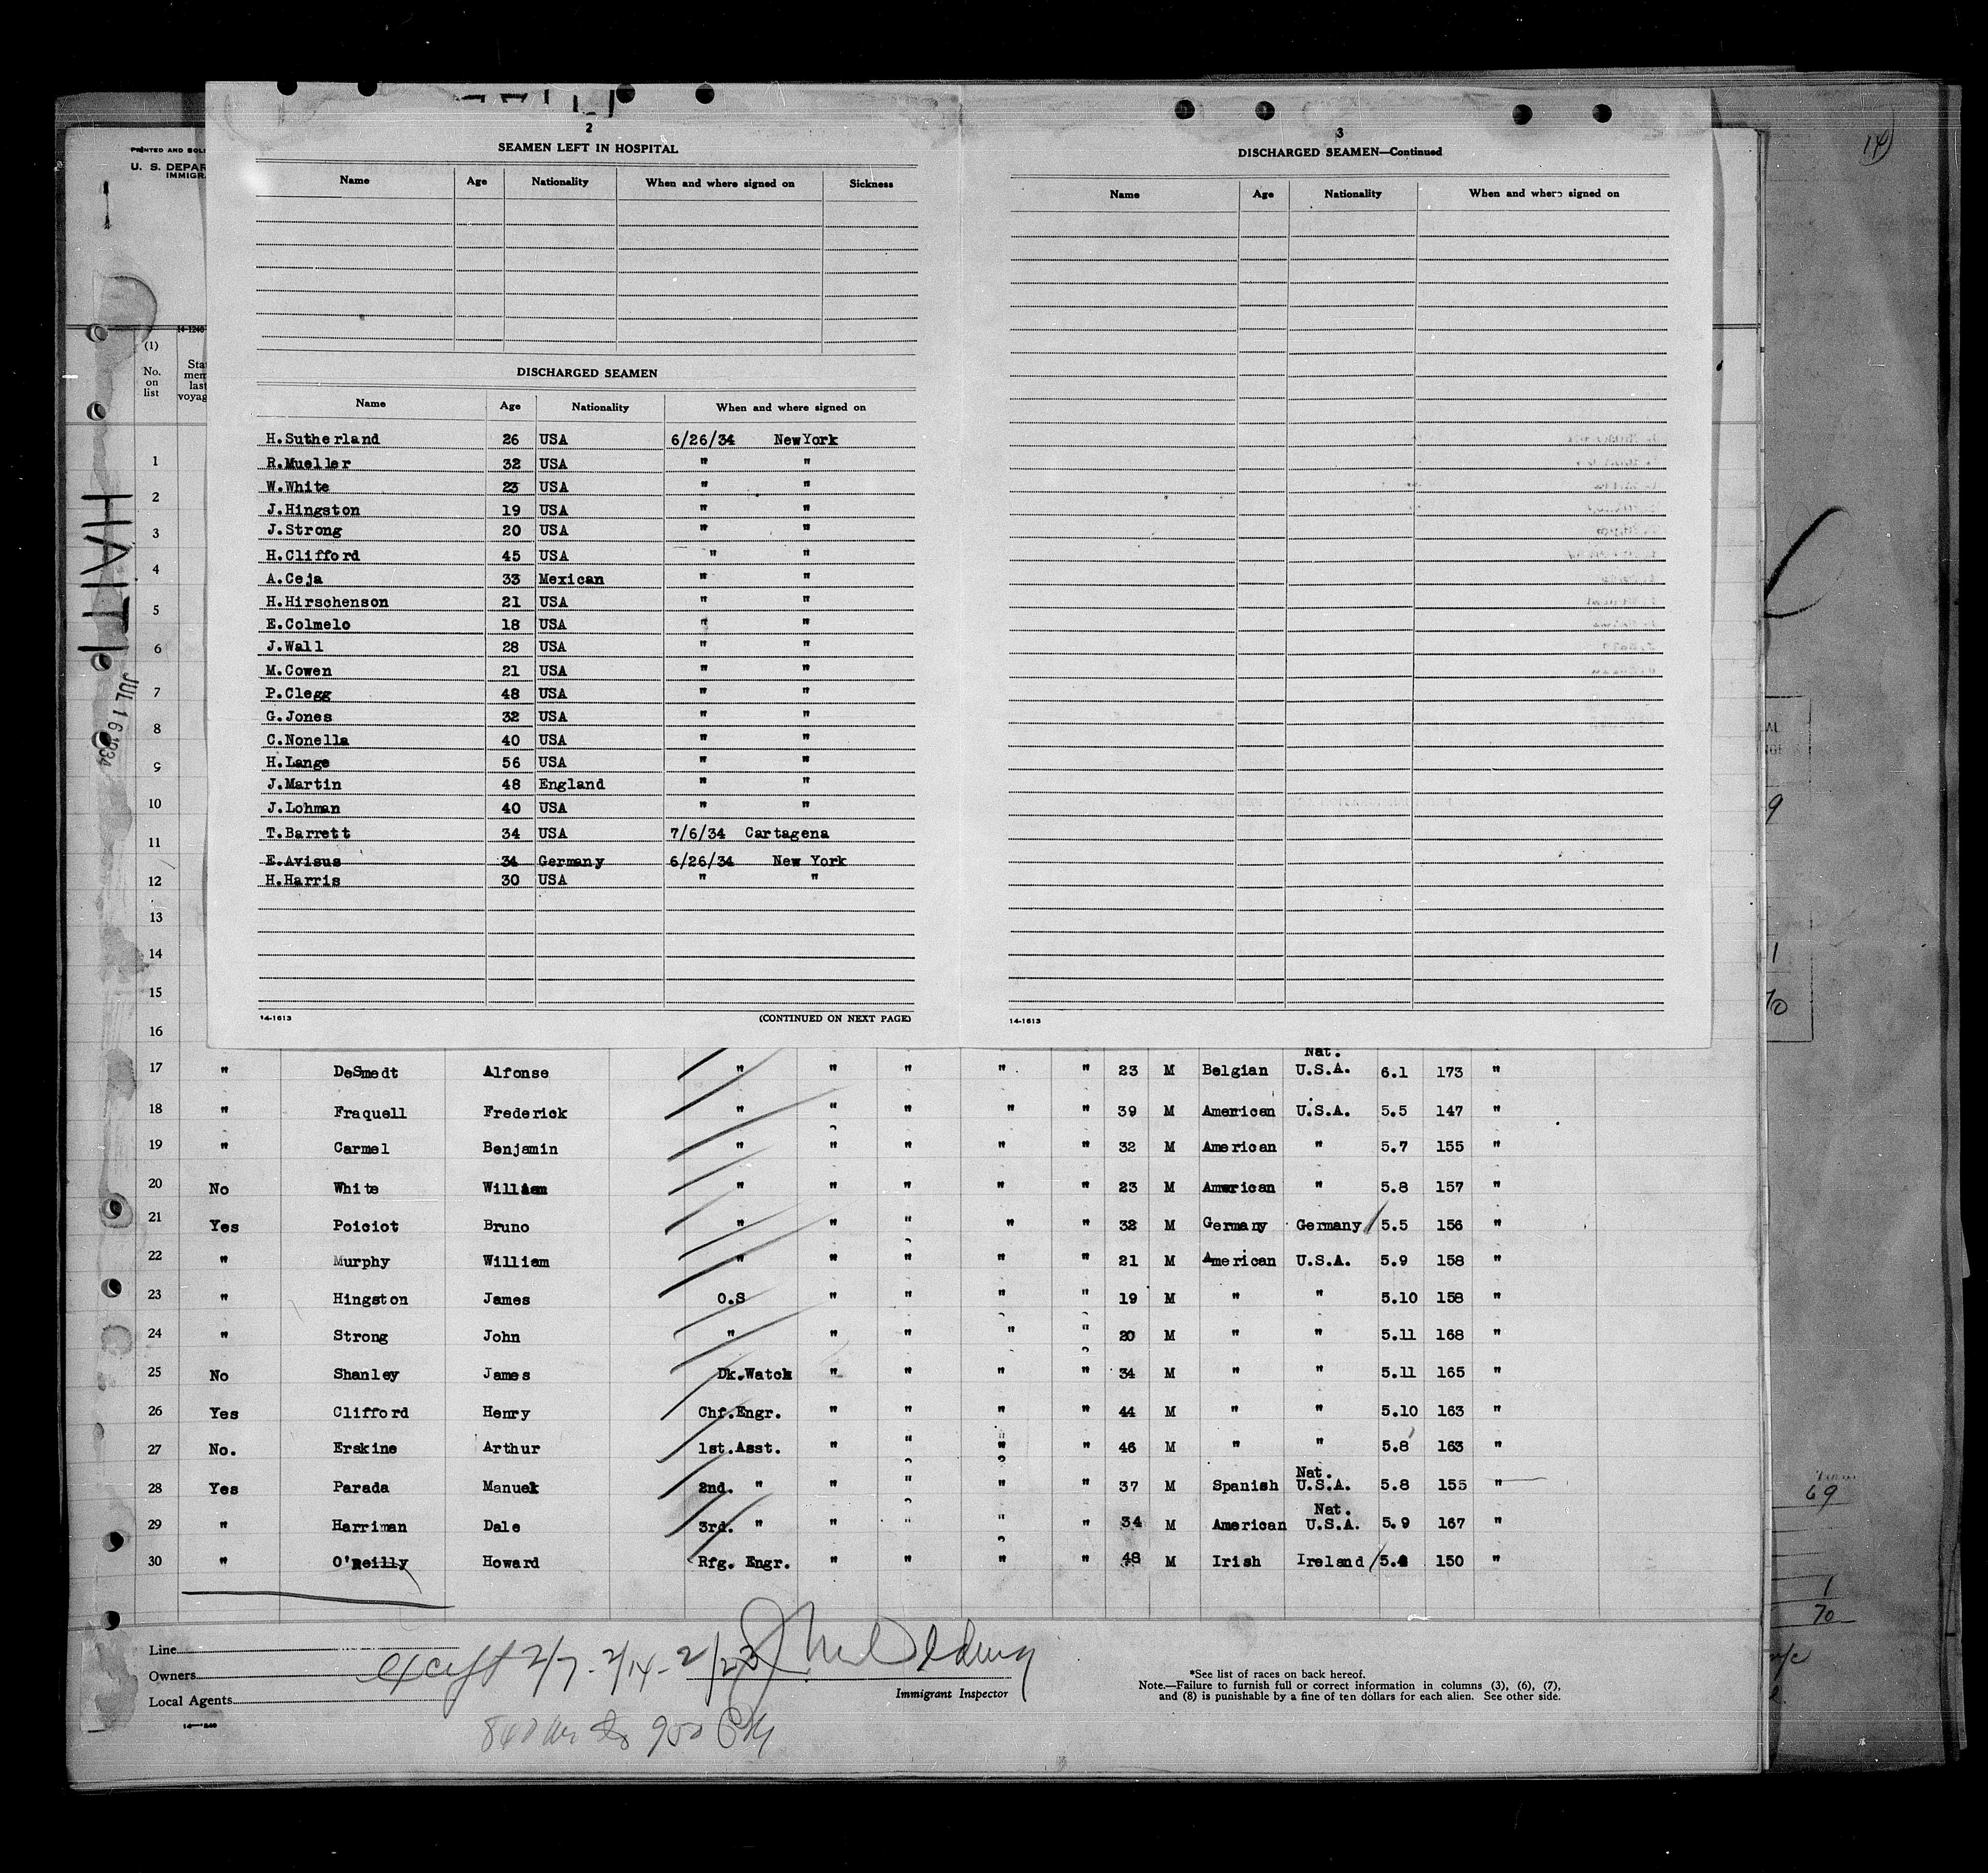 PRINTED AND SOL
U. S. DEPAR
IMMIGR
14-1240
(1)
No. on list
HAITI
JUL 16 1934
14
2
SEAMEN LEFT IN HOSPITAL
Name Age Nationality When and where signed on Sickness
DISCHARGED SEAMEN
Name Age Nationality When and where signed on
H.Sutherland 26 USA 6/26/34 NewYork
R.Mueller 32 USA " "
W.White 23 USA " "
J.Hingston 19 USA " "
J.Strong 20 USA " "
H.Clifford 45 USA " "
A.Ceja 33 Mexican " "
H.Hirschenson 21 USA " "
E.Colmelo 18 USA " "
J.Wall 28 USA " "
M.Cowen 21 USA " "
P.Clegg 48 USA " "
G.Jones 32 USA " "
C.Nonella 40 USA " "
H.Lange 56 USA " "
J.Martin 48 England " "
J.Lohman 40 USA " "
T.Barrett 34 USA 7/6/34 Cartagena
E.Avisus 34 Germany 6/26/34 New York
H.Harris 30 USA " "
14-1613 (CONTINUED ON NEXT PAGE)
3
DISCHARGED SEAMEN—Continued
Name Age Nationality When and where signed on
14-1613
1
2
3
4
5
6
7
8
9
10
11
12
13
14
15
16
Nat.
17 " DeSmedt Alfonse " " " " " 23 M Belgian U.S.A. 6.1 173 "
18 " Fraquell Frederick " " " " " 39 M American U.S.A. 5.5 147 "
19 " Carmel Benjamin " " " " " 32 M American " 5.7 155 "
20 No White William " " " " " 23 M American " 5.8 157 "
21 Yes Poiciot Bruno " " " " " 32 M Germany Germany 5.5 156 "
22 " Murphy William " " " " " 21 M American U.S.A. 5.9 158 "
23 " Hingston James O.S " " " " 19 M " " 5.10 158 "
24 " Strong John " " " " " 20 M " " 5.11 168 "
25 No Shanley James Dk.Watch " " " " 34 M " " 5.11 165 "
26 Yes Clifford Henry Chf.Engr. " " " " 44 M " " 5.10 163 "
27 No. Erskine Arthur 1st.Asst. " " " " 46 M " " 5.8 163 "
Nat.
28 Yes Parada Manuel 2nd. " " " " " 37 M Spanish U.S.A. 5.8 155 "
Nat.
29 " Harriman Dale 3rd. " " " " " 34 M American U.S.A. 5.9 167 "
30 " O'Reilly Howard Rfg. Engr. " " " " 48 M Irish Ireland 5.4 150 "
Line
Owners
Local Agents
except 2/7-2/14-2/23
Immigrant Inspector
*See list of races on back hereof.
Note.—Failure to furnish full or correct information in columns (3), (6), (7),
and (8) is punishable by a fine of ten dollars for each alien. See other side.
9
1
69
1
70